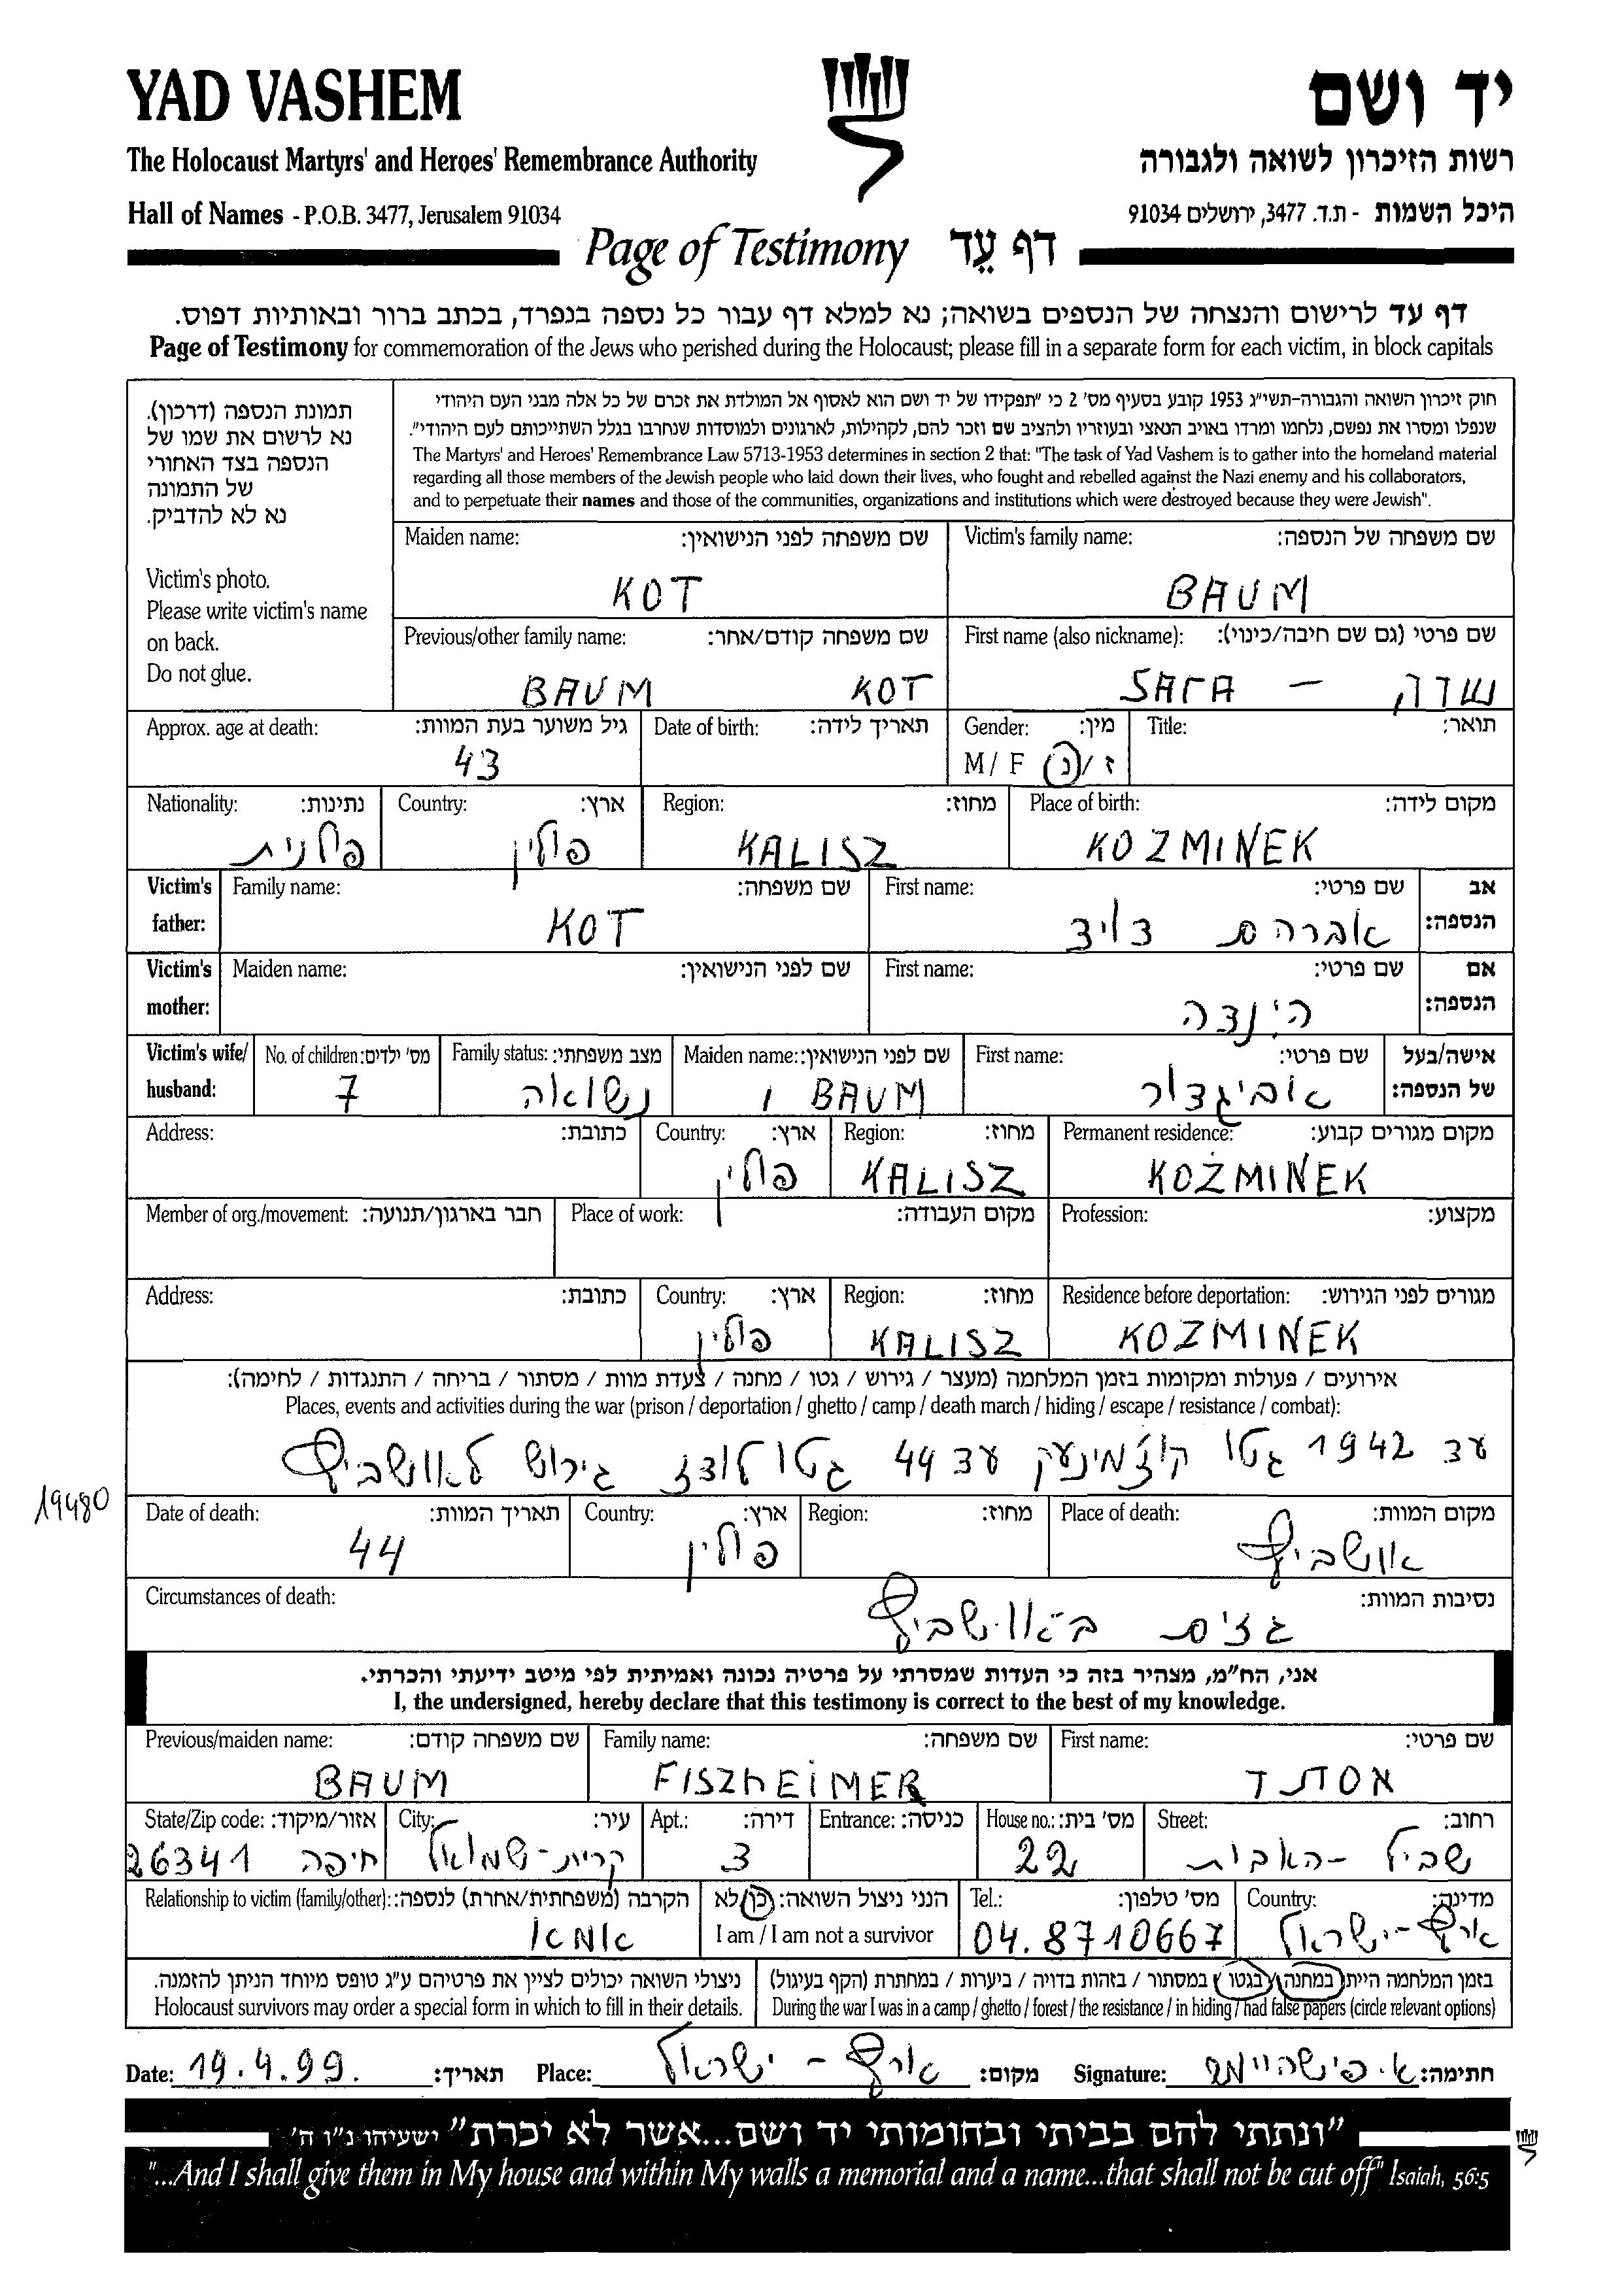 YAD VASHEM
יד ושם
The Holocaust Martyrs' and Heroes' Remembrance Authority
רשות הזיכרון לשואה ולגבורה
Hall of Names - P.O.B. 3477, Jerusalem 91034
היכל השמות - ת.ד. 3477, ירושלים 91034
Page of Testimony דף עֵד
דף עד לרישום והנצחה של הנספים בשואה; נא למלא דף עבור כל נספה בנפרד, בכתב ברור ובאותיות דפוס.
Page of Testimony for commemoration of the Jews who perished during the Holocaust; please fill in a separate form for each victim, in block capitals
תמונת הנספה (דרכון).
נא לרשום את שמו של
הנספה בצד האחורי
של התמונה
נא לא להדביק.
Victim's photo.
Please write victim's name
on back.
Do not glue.
חוק זיכרון השואה והגבורה-תשי"ג 1953 קובע בסעיף מס' 2 כי "תפקידו של יד ושם הוא לאסוף אל המולדת את זכרם של כל אלה מבני העם היהודי
שנפלו ומסרו את נפשם, נלחמו ומרדו באויב הנאצי ובעוזריו ולהציב שם וזכר להם, לקהילות, לארגונים ולמוסדות שנחרבו בגלל השתייכותם לעם היהודי".
The Martyrs' and Heroes' Remembrance Law 5713-1953 determines in section 2 that: "The task of Yad Vashem is to gather into the homeland material
regarding all those members of the Jewish people who laid down their lives, who fought and rebelled against the Nazi enemy and his collaborators,
and to perpetuate their names and those of the communities, organizations and institutions which were destroyed because they were Jewish".
Victim's family name: שם משפחה של הנספה:
BAUM
Maiden name: שם משפחה לפני הנישואין:
KOT
First name (also nickname): שם פרטי (גם שם חיבה/כינוי):
שרה - SARA
Previous/other family name: שם משפחה קודם/אחר:
BAUM KOT
Title: תואר:
Gender: מין:
M / F ז / נ
Date of birth: תאריך לידה:
Approx. age at death: גיל משוער בעת המוות:
43
Place of birth: מקום לידה:
KOZMINEK
Region: מחוז:
KALISZ
Country: ארץ:
פולין
Nationality: נתינות:
פולנית
Victim's father: אב הנספה:
First name: שם פרטי:
אברהם דויד
Family name: שם משפחה:
KOT
Victim's mother: אם הנספה:
First name: שם פרטי:
הינדה
Maiden name: שם לפני הנישואין:
Victim's wife/ husband: אישה/בעל של הנספה:
First name: שם פרטי:
אביגדור
Maiden name: שם לפני הנישואין:
BAUM
Family status: מצב משפחתי:
נשואה
No. of children: מס' ילדים:
7
Permanent residence: מקום מגורים קבוע:
KOŻMINEK
Region: מחוז:
KALISZ
Country: ארץ:
פולין
Address: כתובת:
Profession: מקצוע:
Place of work: מקום העבודה:
Member of org./movement: חבר בארגון/תנועה:
Residence before deportation: מגורים לפני הגירוש:
KOZMINEK
Region: מחוז:
KALISZ
Country: ארץ:
פולין
Address: כתובת:
אירועים / פעולות ומקומות בזמן המלחמה (מעצר / גירוש / גטו / מחנה / צעדת מוות / מסתור / בריחה / התנגדות / לחימה):
Places, events and activities during the war (prison / deportation / ghetto / camp / death march / hiding / escape / resistance / combat):
עד 1942 גטו קוז'מינעק עד 44 גטו לודז גירוש לאושביץ
19480
Place of death: מקום המוות:
אושביץ
Region: מחוז:
Country: ארץ:
פולין
Date of death: תאריך המוות:
44
Circumstances of death: נסיבות המוות:
גזים באושביץ
אני, הח"מ, מצהיר בזה כי העדות שמסרתי על פרטיה נכונה ואמיתית לפי מיטב ידיעתי והכרתי.
I, the undersigned, hereby declare that this testimony is correct to the best of my knowledge.
First name: שם פרטי:
אסתר
Family name: שם משפחה:
FISZhEIMER
Previous/maiden name: שם משפחה קודם:
BAUM
Street: רחוב:
שביל - האבות
House no.: מס' בית:
22
Entrance: כניסה:
Apt.: דירה:
3
City: עיר:
קרית-שמואל
State/Zip code: אזור/מיקוד:
חיפה 26341
Country: מדינה:
ארץ-ישראל
Tel.: מס' טלפון:
04.8710667
הנני ניצול השואה: כן/לא
I am / I am not a survivor
Relationship to victim (family/other): הקרבה (משפחתית/אחרת) לנספה:
אמא
בזמן המלחמה הייתי במחנה / בגטו / במסתור / בזהות בדויה / ביערות / במחתרת (הקף בעיגול)
During the war I was in a camp / ghetto / forest / the resistance / in hiding / had false papers (circle relevant options)
ניצולי השואה יכולים לציין את פרטיהם ע"ג טופס מיוחד הניתן להזמנה.
Holocaust survivors may order a special form in which to fill in their details.
Date: 19.4.99. תאריך: Place: ארץ - ישראל מקום: Signature: א. פישהיימר חתימה:
"ונתתי להם בביתי ובחומותי יד ושם...אשר לא יכרת" ישעיהו נ"ו ה'
"...And I shall give them in My house and within My walls a memorial and a name...that shall not be cut off" Isaiah, 56:5